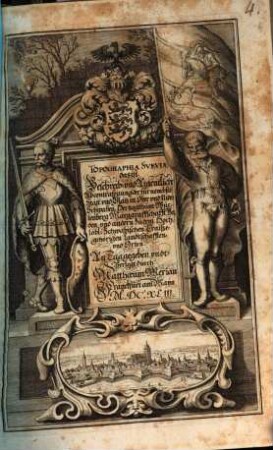 4.
TOPOGRAPHIA SUEVIÆ
das ist
Beschreib: vnd Aigentliche
Abcontrafeitung der fürnembste
Stätt vnd Plätz in Ober vnd Nider
Schwaben, Hertzogthum Würtenberg
Marggraffschafft Baden
vnd andern zu dem Hochlöbl:
Schwabischen Craiße
gehörigen Landtschafften
vnd Orten.
An Tag gegeben vndt
Verlegt durch
Matthæum Merian
Franckfurt am Mayn
M.DC.XLIII.